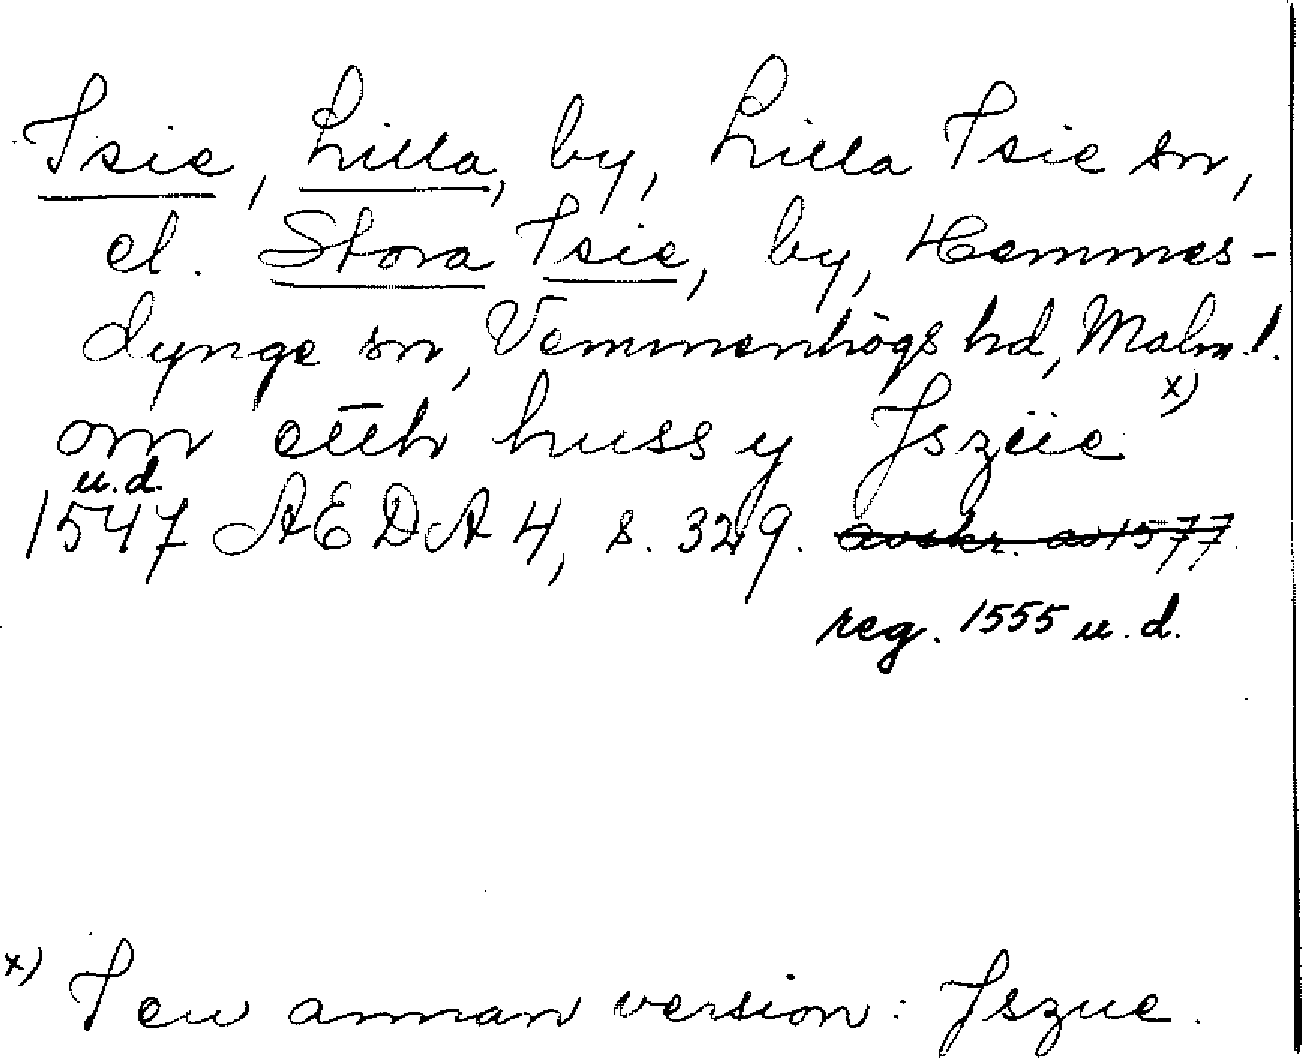 Isie, Lilla, by, Lilla Isie sn,
el. Stora Isie, by, Hemmes-
dynge sn, Vemmenhögs hd, Malm. l.
om etth huss y Jszüe x)
u.d.
1547 ÆDA 4, s. 329. avskr. av 1577.
reg. 1555 u.d.
x) I en annan version: Jszue.